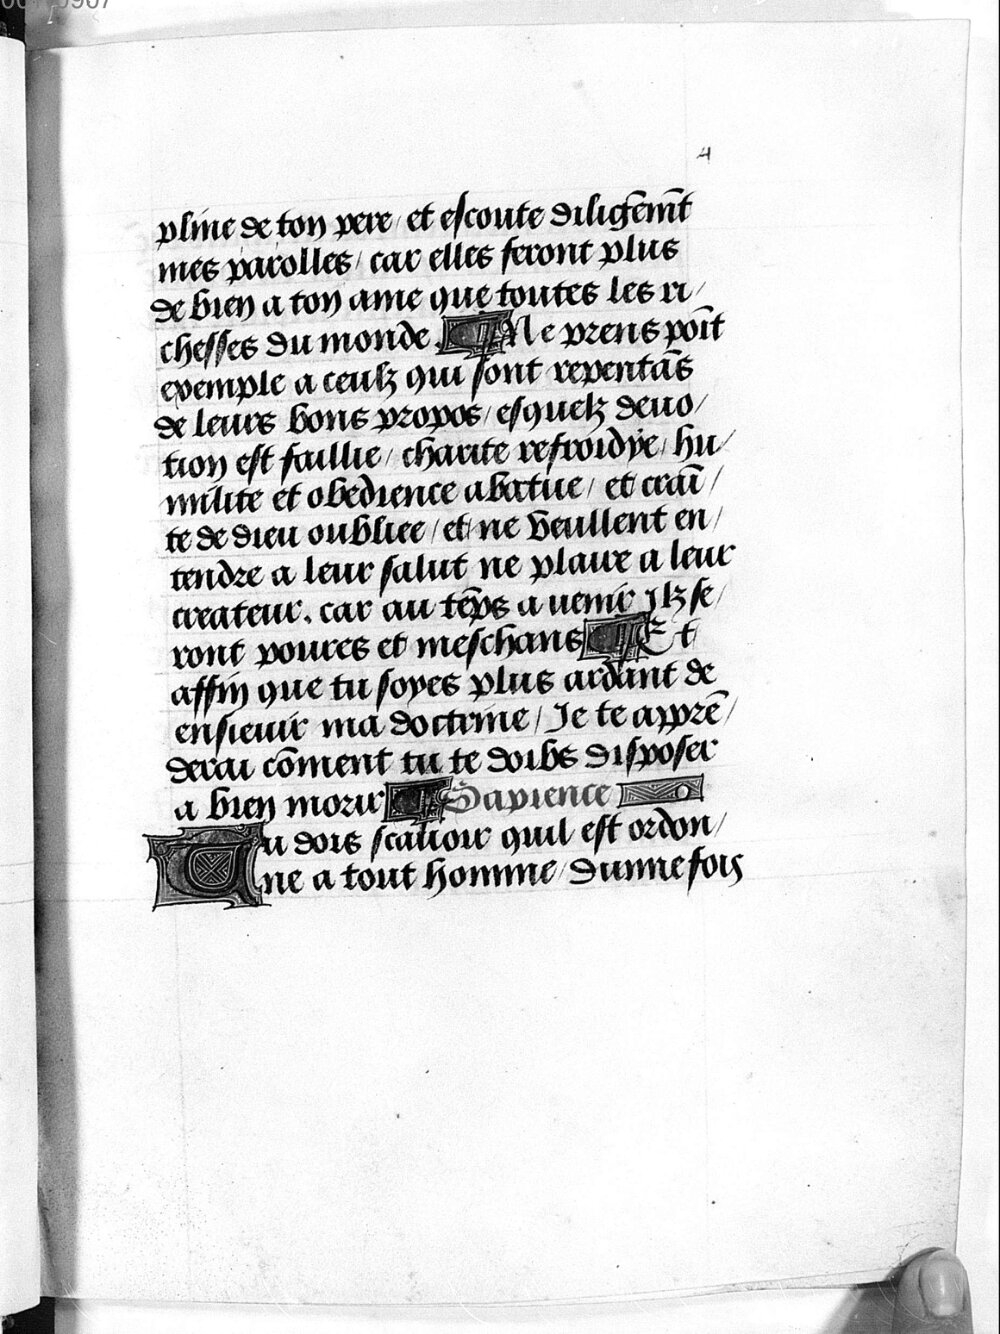 4
pline de ton pere / et escoute diligem̄t
mes parolles / car elles feront plus
de bien a ton ame que toutes les ri /
chesses du monde. Ne prens poīt
exemple a ceulz qui sont repentās
de leurs bons propos / esquelz deuo /
tion est faillie / charite refroidye / hu /
milite et obedience abatue / et craī /
te de dieu oubliee / et ne veullent en /
tendre a leur salut ne plaire a leur
createur. car au tēps a uenir ilz se /
ront poures et meschans Et
affin que tu soyes plus ardant de
ensieuir ma doctrine / Je te apprē /
derai cōment tu te doibs disposer
a bien morir Sapience
Tu dois scauoir quil est ordon /
ne a tout homme / dunne fois